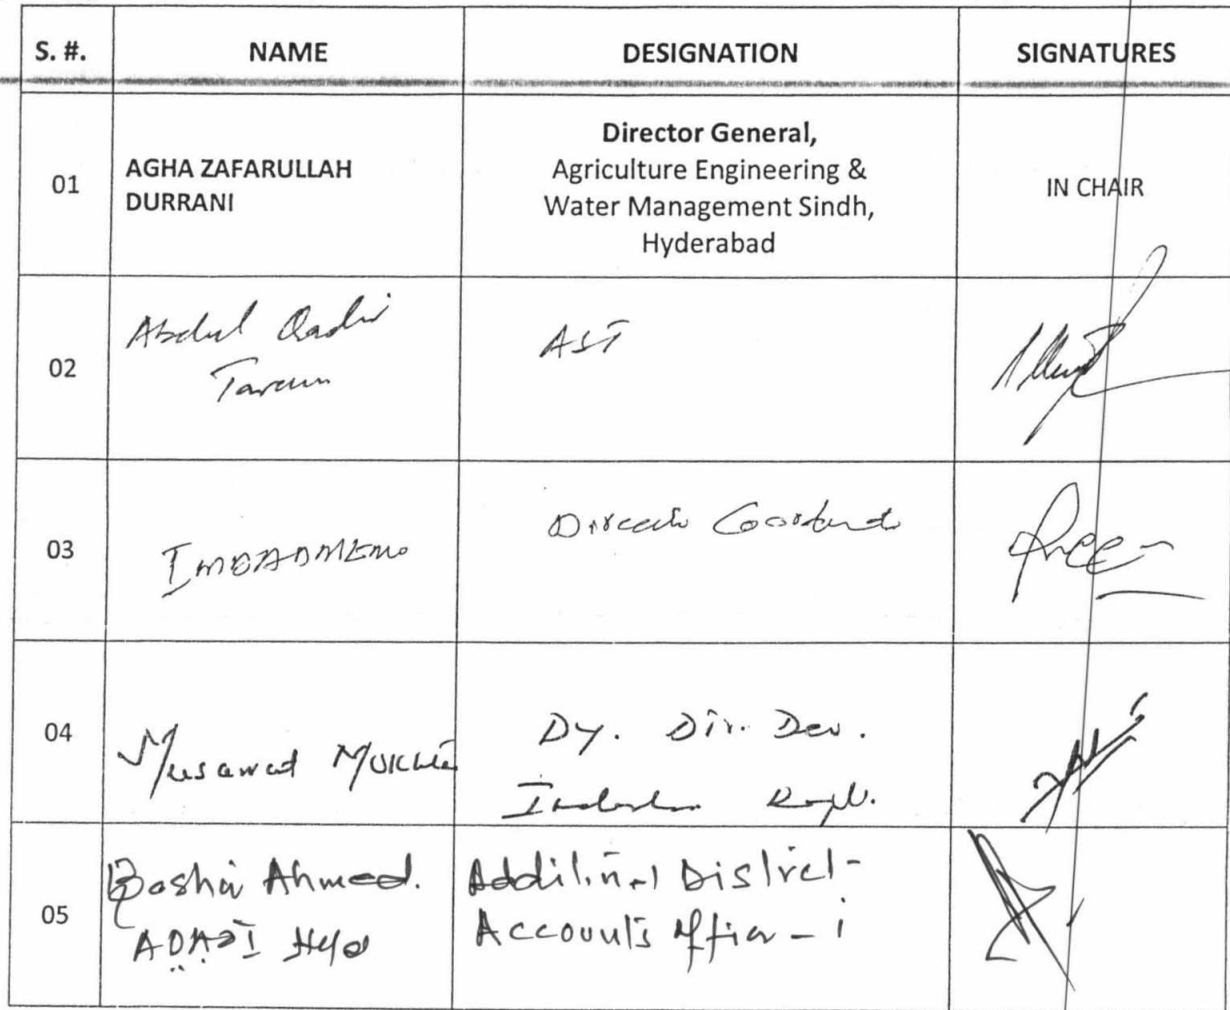 S. #. NAME DESIGNATION SIGNATURES
01
AGHA ZAFARULLAH
DURRANI
Director General,
Agriculture Engineering &
Water Management Sindh,
Hyderabad
IN CHAIR
02
Abdul Qadir
AST
03
Director
04
Musawat
Dy. Dir. Dev.
05
Bashir Ahmed.
Hyd
Additional District
Accounts officer - i